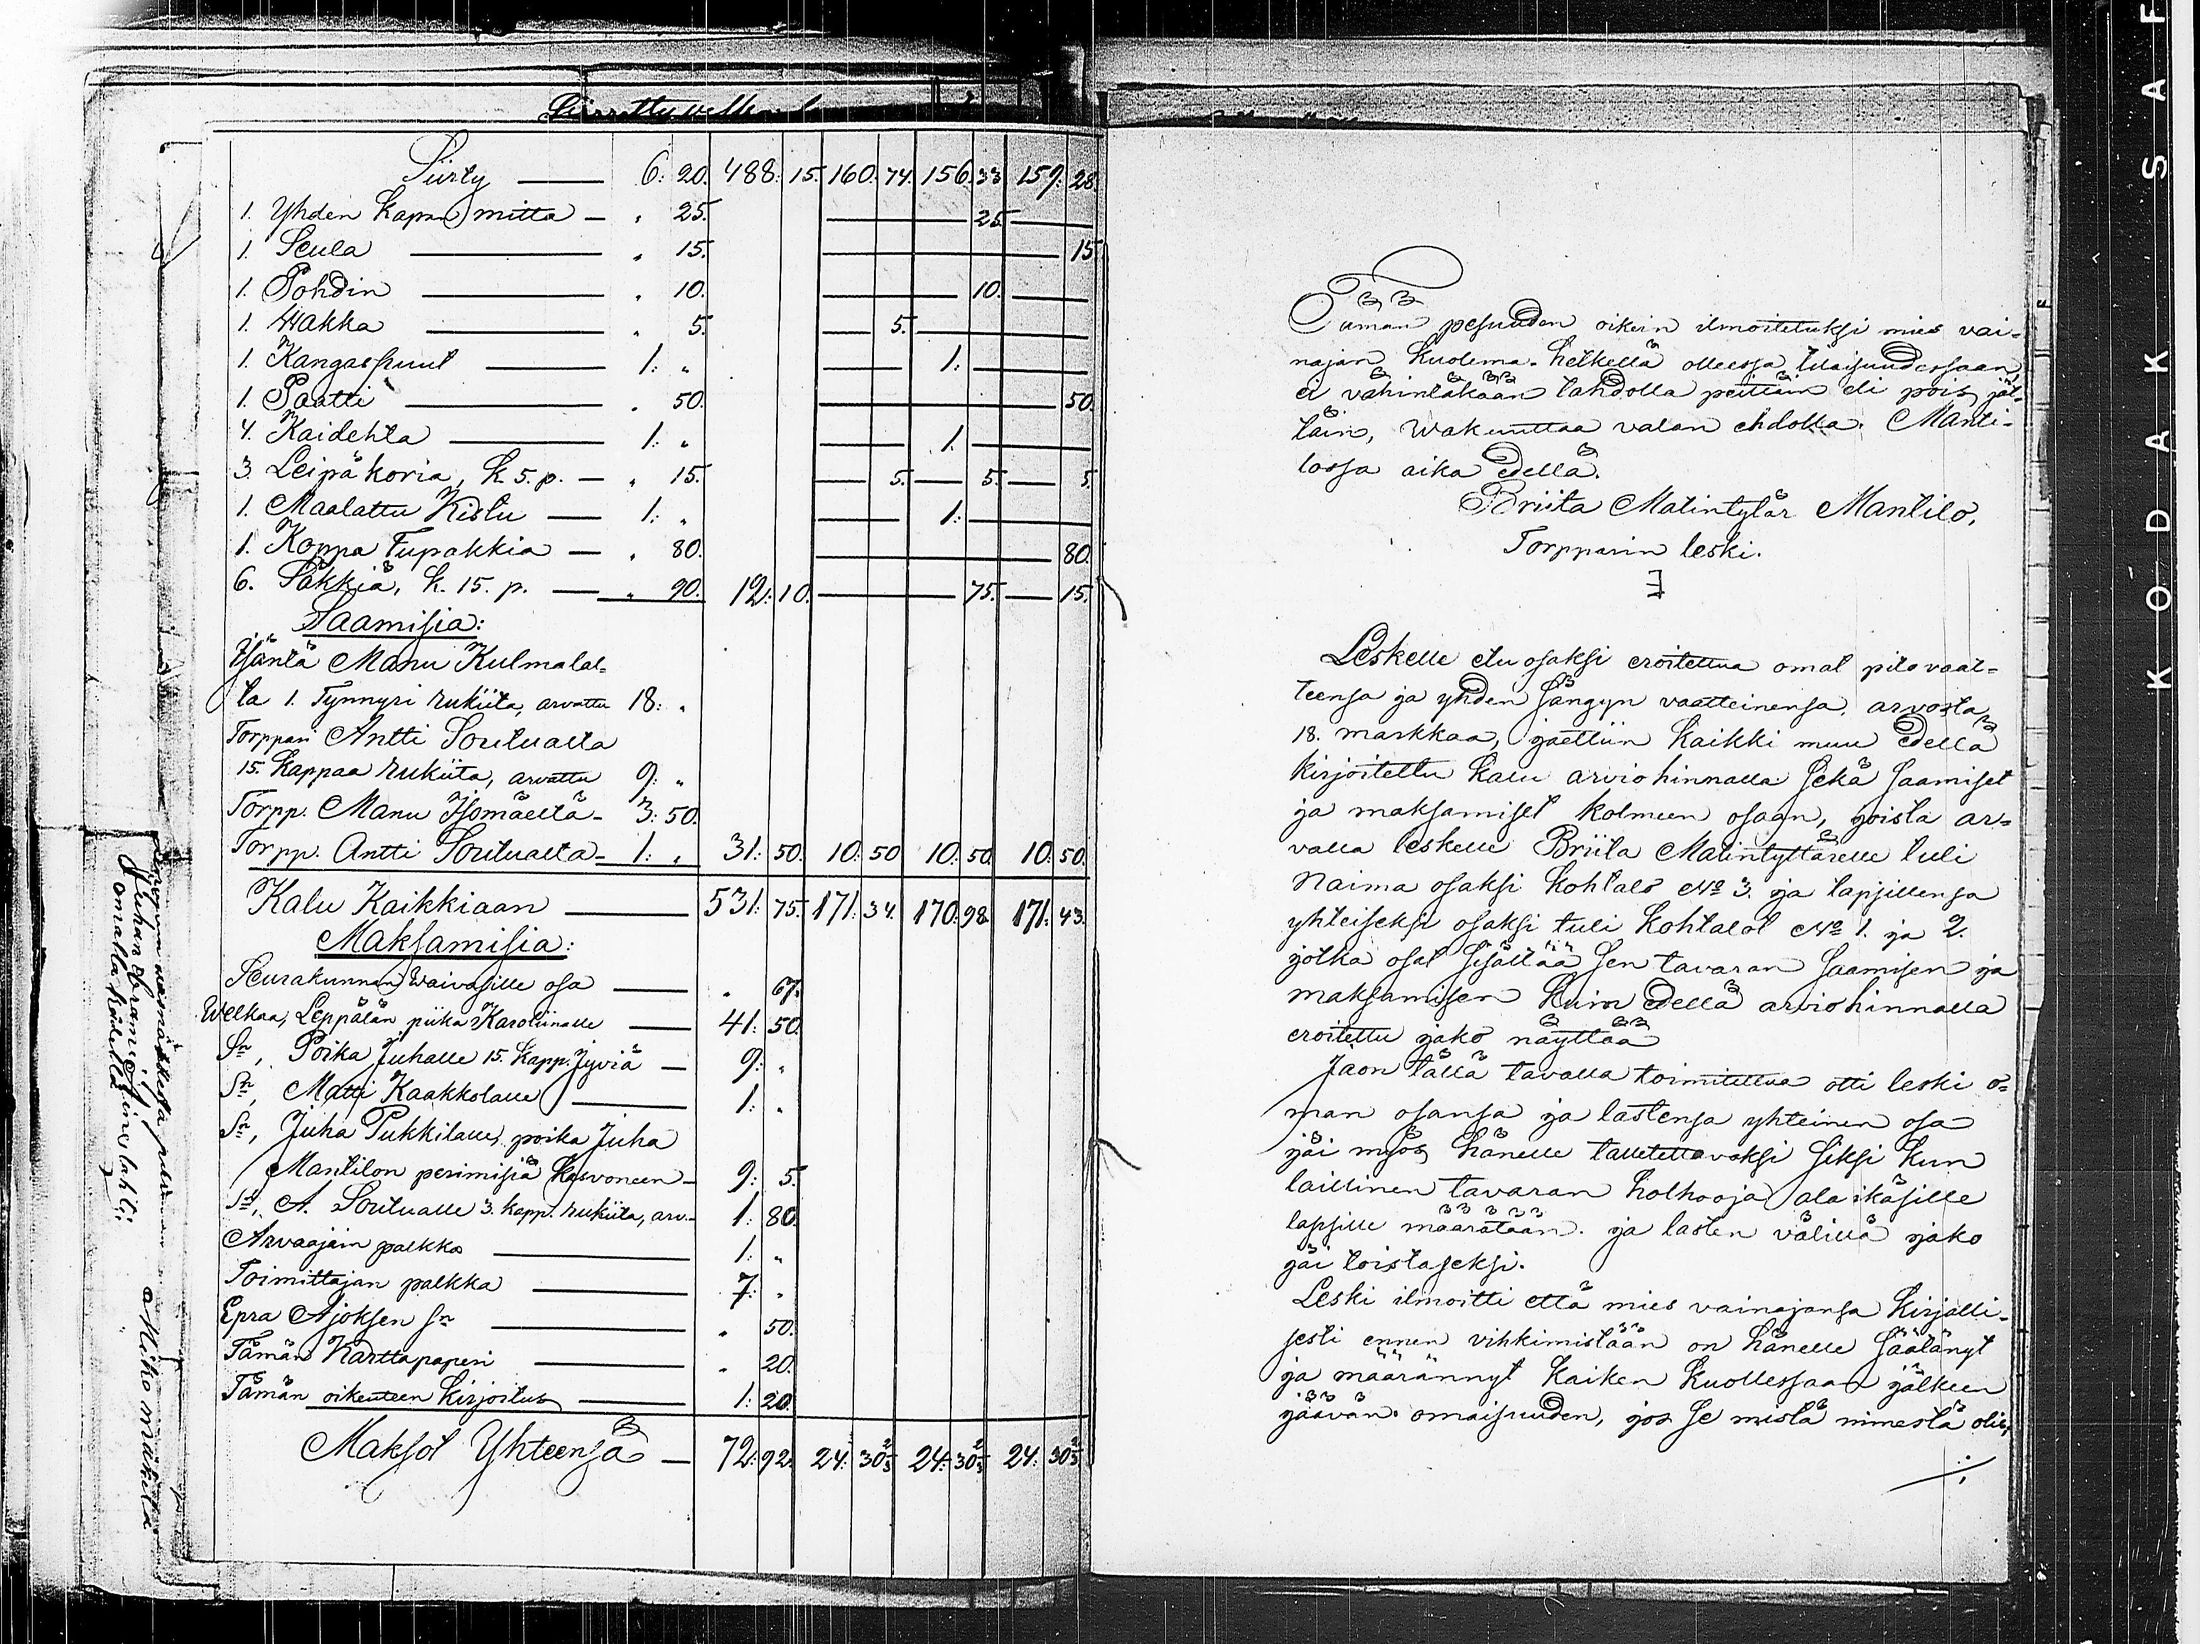 Siirty — 6: 20. 488: 15. 160: 74. 156: 33 159: 28.
1. Yhden kapan mitta — „ 25. — 25. —
1. Seula — „ 15. — 15.
1. Pohdin — „ 10. — 10. —
1. Wakka — „ 5. — 5. —
1. Kangaspuut — 1: „ — 1: —
1. Paatti — „ 50. — 50.
4. Kaidehta — 1: „ — 1. —
3. Leipäkoria, k. 5. p. — „ 15. — 5. — 5. — 5.
1. Maalattu Kistu — 1: „ — 1: —
1. Koppa Tupakkia — „ 80. — 80.
6. Säkkiä, k. 15. p. — „ 90. 12: 10. — 75. — 15.
Saamisia:
Isäntä Manu Kulmalal=
ta 1. Tynnyri rukiita, arvattu 18: „
Torppari Antti Soutualta
15. Kappaa rukiita, arvattu 9: „
Torpp. Manu Isomäeltä — 3: 50.
Torpp. Antti Soutualta — 1: „ 31: 50. 10: 50 10: 50. 10: 50.
Kalu Kaikkiaan — 531: 75. 171: 34. 170: 98. 171: 43.
Maksamisia:
Seurakunnan Waivasille osa — „ 67.
Welkaa, Leppälän piika Karoliinalle — 41: 50.
Sn, Poika Juhalle 15. Kapp. Jyviä — 9: „
Sn, Matti Kaakkolalle — 1: „
Sn, Juha Pukkilalle, poika Juha
Mantilon perimisiä Kasvoneen — 9: 5.
Sn, A. Soutualle 3. kapp. rukiita, arv. — 1: 80.
Arvaajain palkka — 1: „
Toimittajan palkka — 7: „
Epra Ajoksen sn — „ 50.
Tämän Karttapaperi — „ 20.
Tämän oikeuteen Kirjoitus — 1: 20.
Maksot Yhteensä — 72: 92. 24: 30⅔ 24: 30⅔ 24: 30⅔
omalla kädellä
Tämän pesuuden oikein ilmoitetuksi mies vai=
najan Kuolema-hetkellä olleessa tilaisuudessaan,
ei vähintäkään tahdolla peittäin eli pois jät=
täin, wakuuttaa valan ehdolla. Manti=
lossa aika edellä.
Briita Matintytär Mantilo,
Torpparin leski.
Leskelle etu osaksi eroitettua omat pito vaat=
teensa ja yhden sängyn vaatteinensa, arvosta
18. markkaa, jaettiin kaikki muu edellä
kirjoitettu kalu arvio hinnalla sekä saamiset
ja maksamiset kolmeen osaan, joista ar=
valla leskelle Briita Matintyttärelle tuli
Naima osaksi kohtalo No 3. ja lapsillensa
yhteiseksi osaksi tuli kohtalot No 1. ja 2.
jotka osat sisältää sen tavaran saamisen ja
maksamisen kuin edellä arvio hinnalla
eroitettu jako näyttää
Jaon tällä tavalla toimitettua otti leski o=
man osansa ja lastensa yhteinen osa
jäi myös hänelle talletettavaksi siksi kun
laillinen tavaran holhooja ala ikäsille
lapsille määrätään. ja lasten välillä jako
jäi toistaseksi.
Leski ilmoitti että mies vainajansa kirjalli=
sesti ennen vihkimistään on hänelle säätänyt
ja määrännyt Kaiken Kuollessaan jälkeen
jäävän omaisuuden, jos se mistä nimestä olis,
./.
KODAK SAF